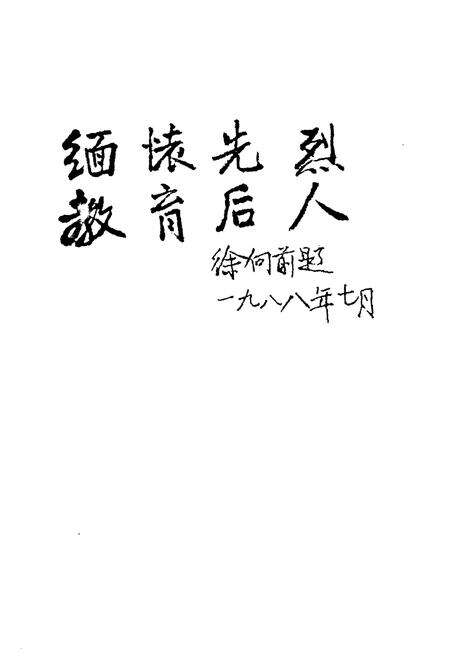 缅怀先烈
教育后人
徐向前题
一九八八年七月